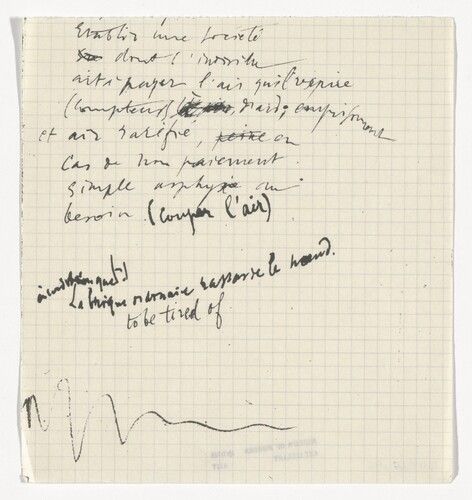 Etablir une société
dont l'individu
ait à payer l'air qu'il respire
(compteurs) ; emprisonnement
et air raréfié, en
Cas de non paiement
simple asphyxie au
besoin (couper l'air)
à condition que(?)
La brique normale rassasie le nœud.
to be tired of